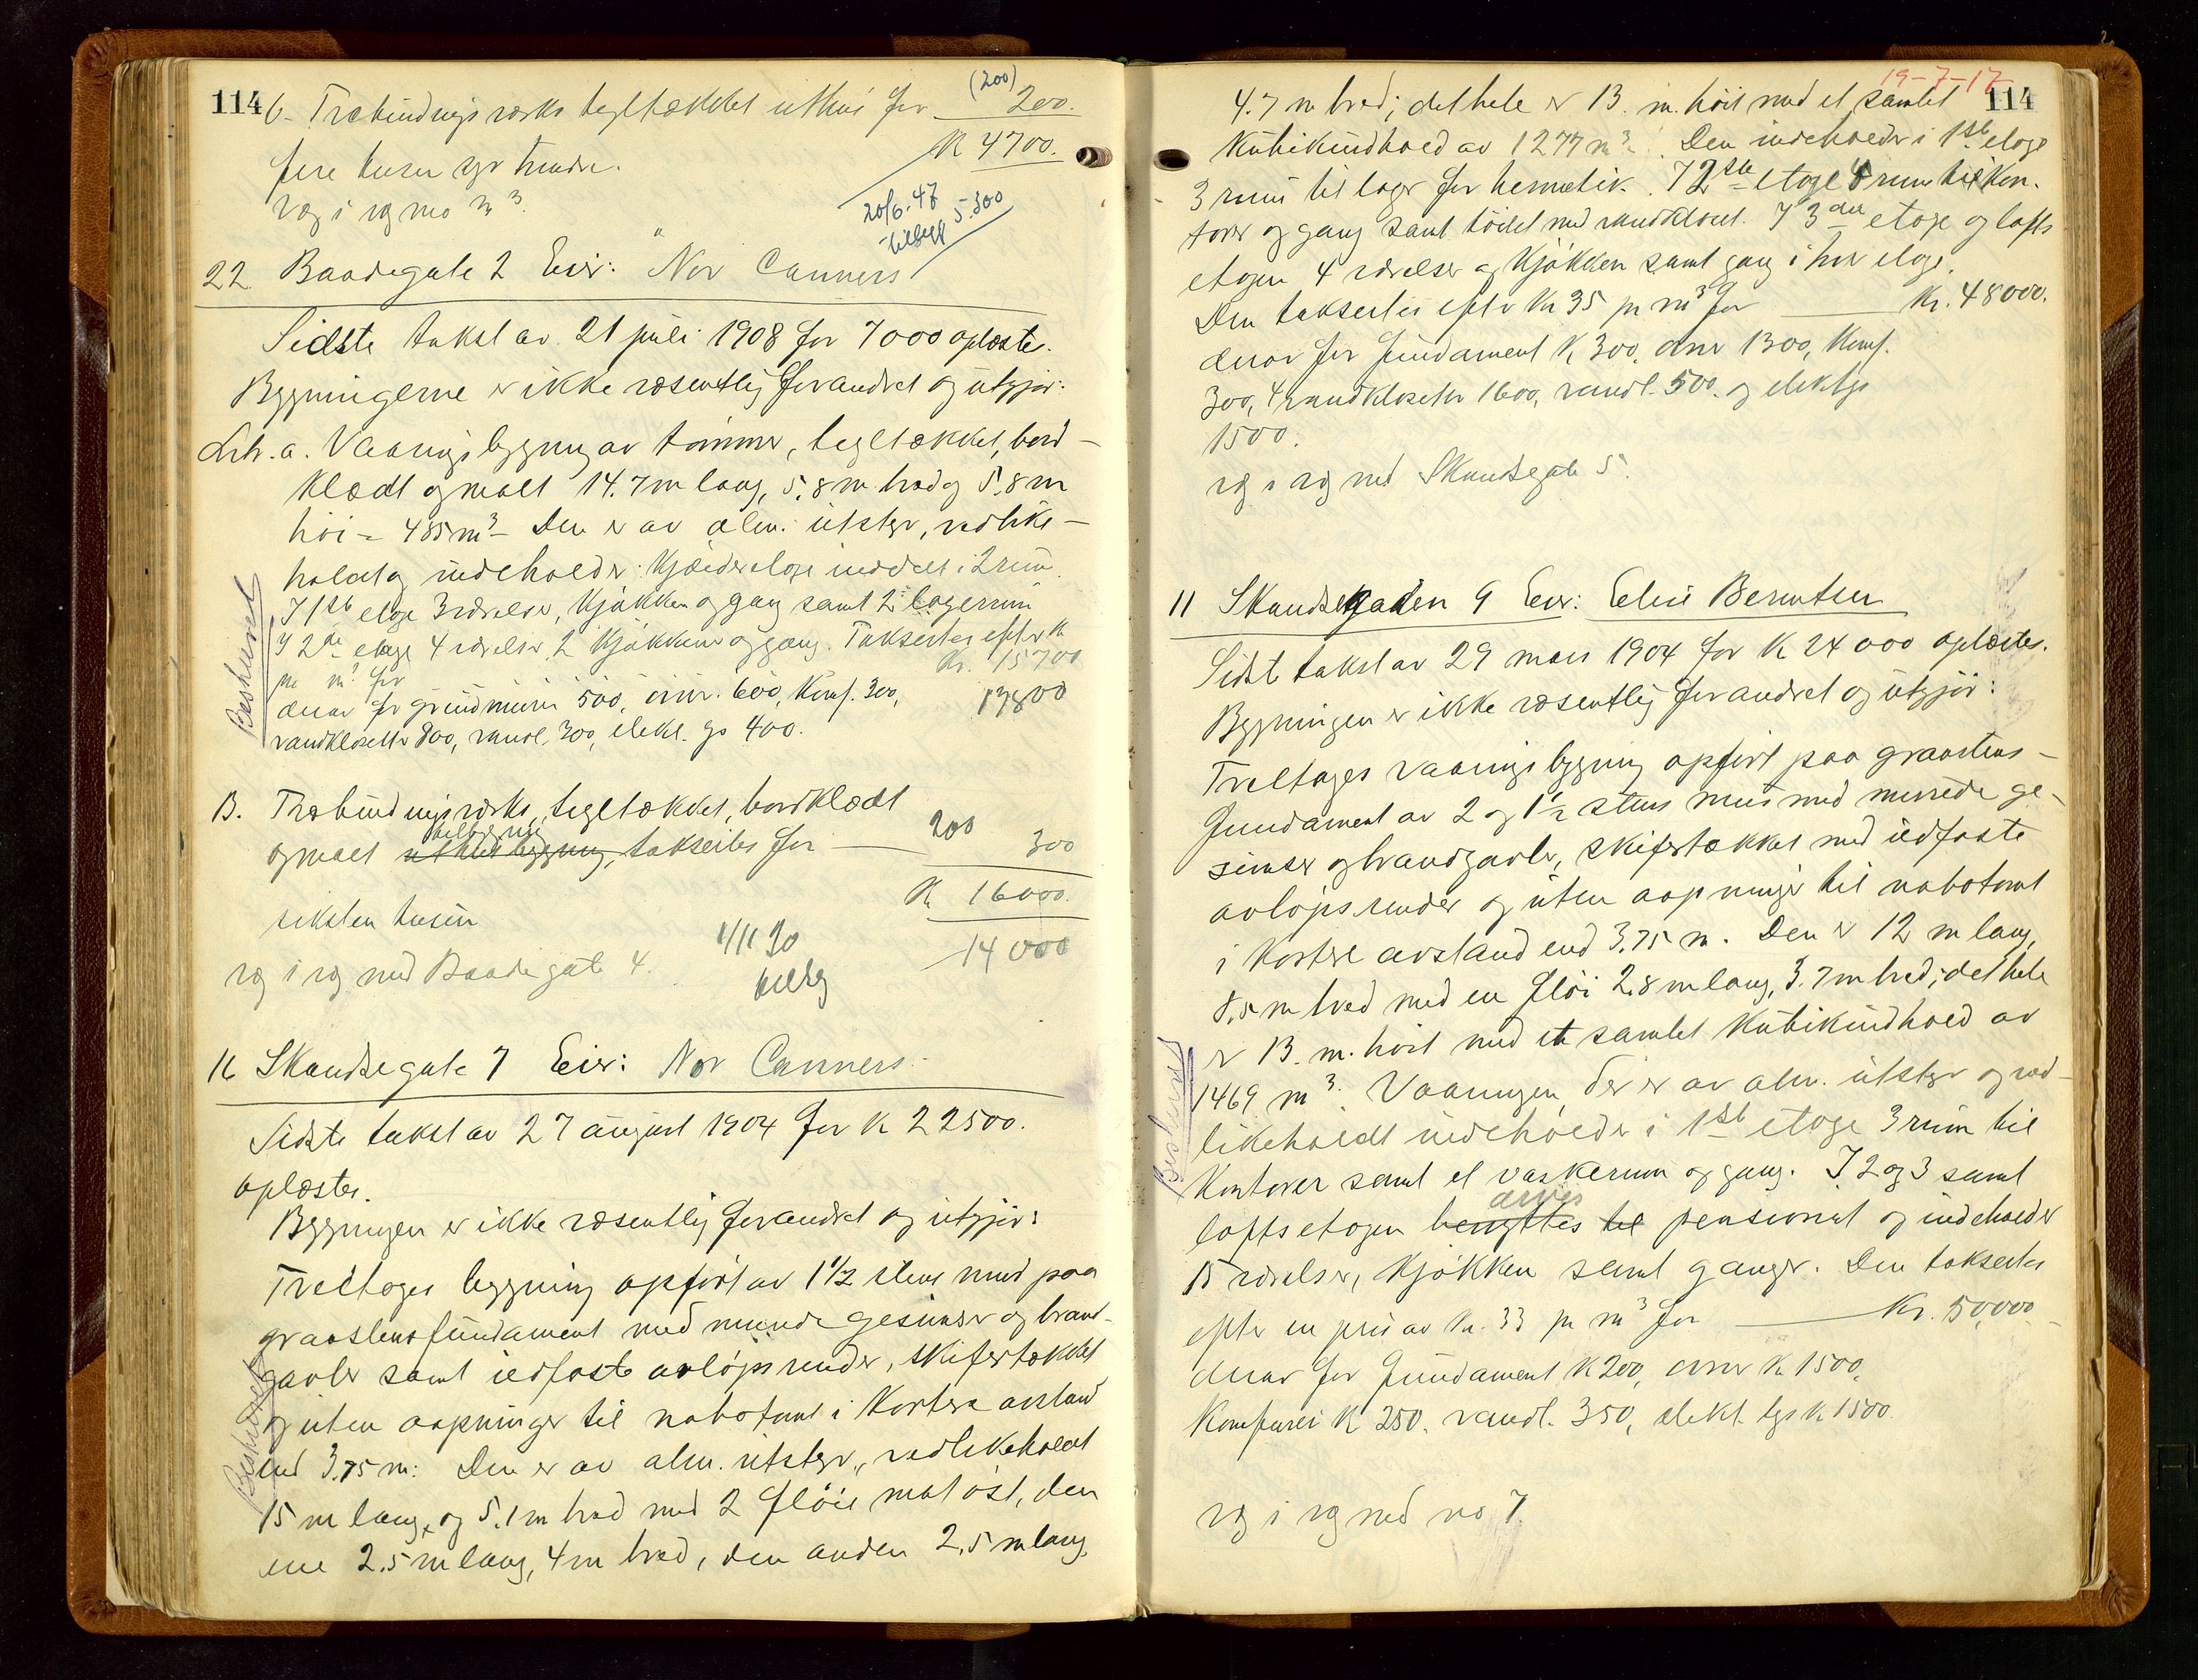 114 b. Træbindingsværks tegltækket uthus for (200) 200.
K 4700.
fire tusen syv hundre.
væg i væg mo
20/6.47 5.300
22 Baadegate 2 Eier: "Nor Canners"
Sidste takst av 21 juli 1908 for 7000 oplæstes.
Bygningerne er ikke væsentlig forandret og utgjør:
Litr. a. Vaaningsbygning av tømmer, tegltækket, bord-
klædt og malt 14.7 m lang, 5,8 m bred og 5.8 m
høi = 485 m³ - Den er av alm. utstyr, vedlike-
holdt og indeholder: Kjælderetage inddelt i 2 rum.
I 1ste etage 3 værelser, Kjøkken og gang samt 2 lagerrum
I 2den etage 4 værelser, 2 Kjøkkener og gang. Takseres efter K
pr m³ for Kr. 15700
derav for grundmuren 500, ovner. 600, Komf. 300, 13800
vandklosetter 800, vandl. 300, elekt. lys 400.
Beskrevet
B. Træbindingsværks, tegltækket, bordklædt
og malt uthusbygning, tilbygning takseres for 200 300
K 16000.
seksten tusen
1/11 30 14000
væg i væg med Baadegate 4.
16 Skandsegate 7 Eier: Nor Canners.
Sidste takst av 27 august 1904 for K 22500.
oplæstes.
Bygningen er ikke væsentlig forandret og utgjør:
Treetages bygning opført av 1½ stens mur paa
graastensfundament med murede gesimser og brand-
gavler samt ildfaste avløpsrender, skifertækket
og uten aapninger til nabotomt i kortere avstand
end 3.75 m: Den er av alm. utstyr, vedlikeholdt
Beskrevet
15 m lang, og 5.1 m bred med 2 fløie mot øst, den
ene 2.5 m lang, 4 m bred, den anden 2.5 m lang,
19-7-17
114
4.7 m bred; det hele er 13. m. høit med et samlet
Kubikindhold av 1277 m³. Den indeholder i 1ste etage
3 rum til lager for hermetik. I 2den etage 4 rum til Kon-
torer og gang samt toilet med vandkloset. I 3die etage og lofts
etagen 4 værelser og Kjøkken samt gang i hver etage.
Den takseres efter Kr 35 pr m³ for Kr. 48000.
derav for fundament K 300, ovner 1300, Komf.
300, 4 vandklosetter 1600, vandl. 500. og elekt lys
1500.
væg i væg med Skandsegate 5.
11 Skandsegaden 9 Eier: Elin Berntsen
Sidste takst av 29 mars 1904 for K 24000 oplæstes.
Bygningen er ikke væsentlig forandret og utgjør:
Treetages vaaningsbygning opført paa graastens-
fundament av 2 og 1½ stens mur med murede ge-
simser og brandgavler, skifertækket med ildfaste
avløpsrender og uten aapninger til nabotomt
i kortere avstand end 3.75 m. Den er 12 m lang,
8,5 m bred med en fløi 2.8 m lang, 3.7 m bred; det hele
er 13. m. høit med et samlet Kubikindhold av
1469 m³. Vaaningen, der er av alm. utstyr og ved-
likeholdt indeholder i 1ste etage 3 rum til
Beskrevet
Kontorer samt et vaskerum og gang. I 2 og 3 samt
loftsetagen benyttes til drives pensionat og indeholder
15 værelser, Kjøkken samt ganger. Den takseres
efter en pris av Kr. 33 pr m³ for Kr. 50,000
derav for fundament K 200, ovner K 1500,
Komfurer K 250. vandl. 350, elekt. lys K 1500.
væg i væg med no 7.